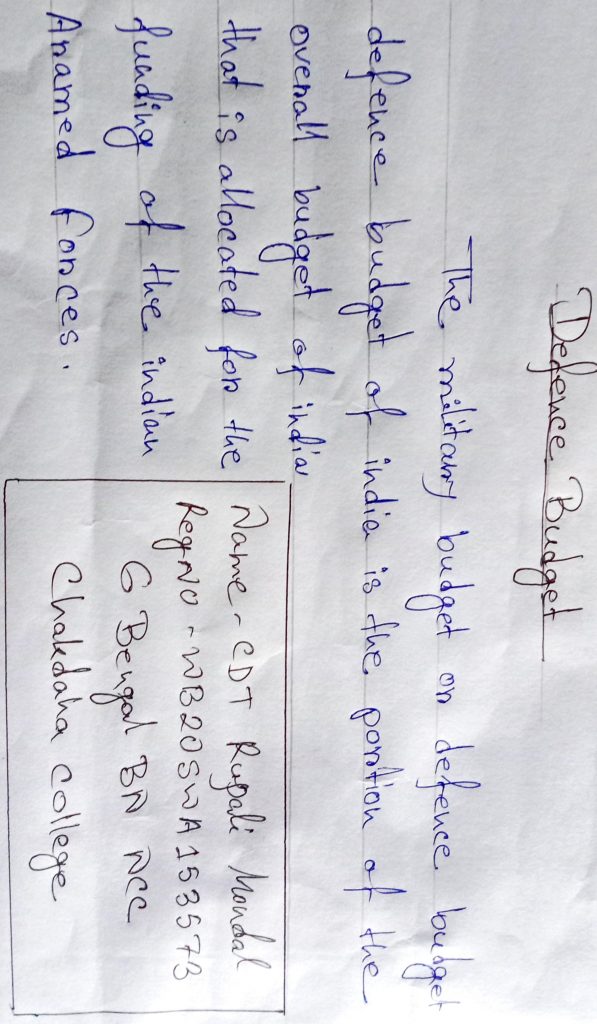 Defence Budget
The military budget or defence budget
defence budget of india is the portion of the
overall budget of india
that is allocated for the
funding of the indian
Anamed forces.
Name - CDT Rupali Mondal
Reg No - WB20SWA153573
6 Bengal BN NCC
Chakdaha College